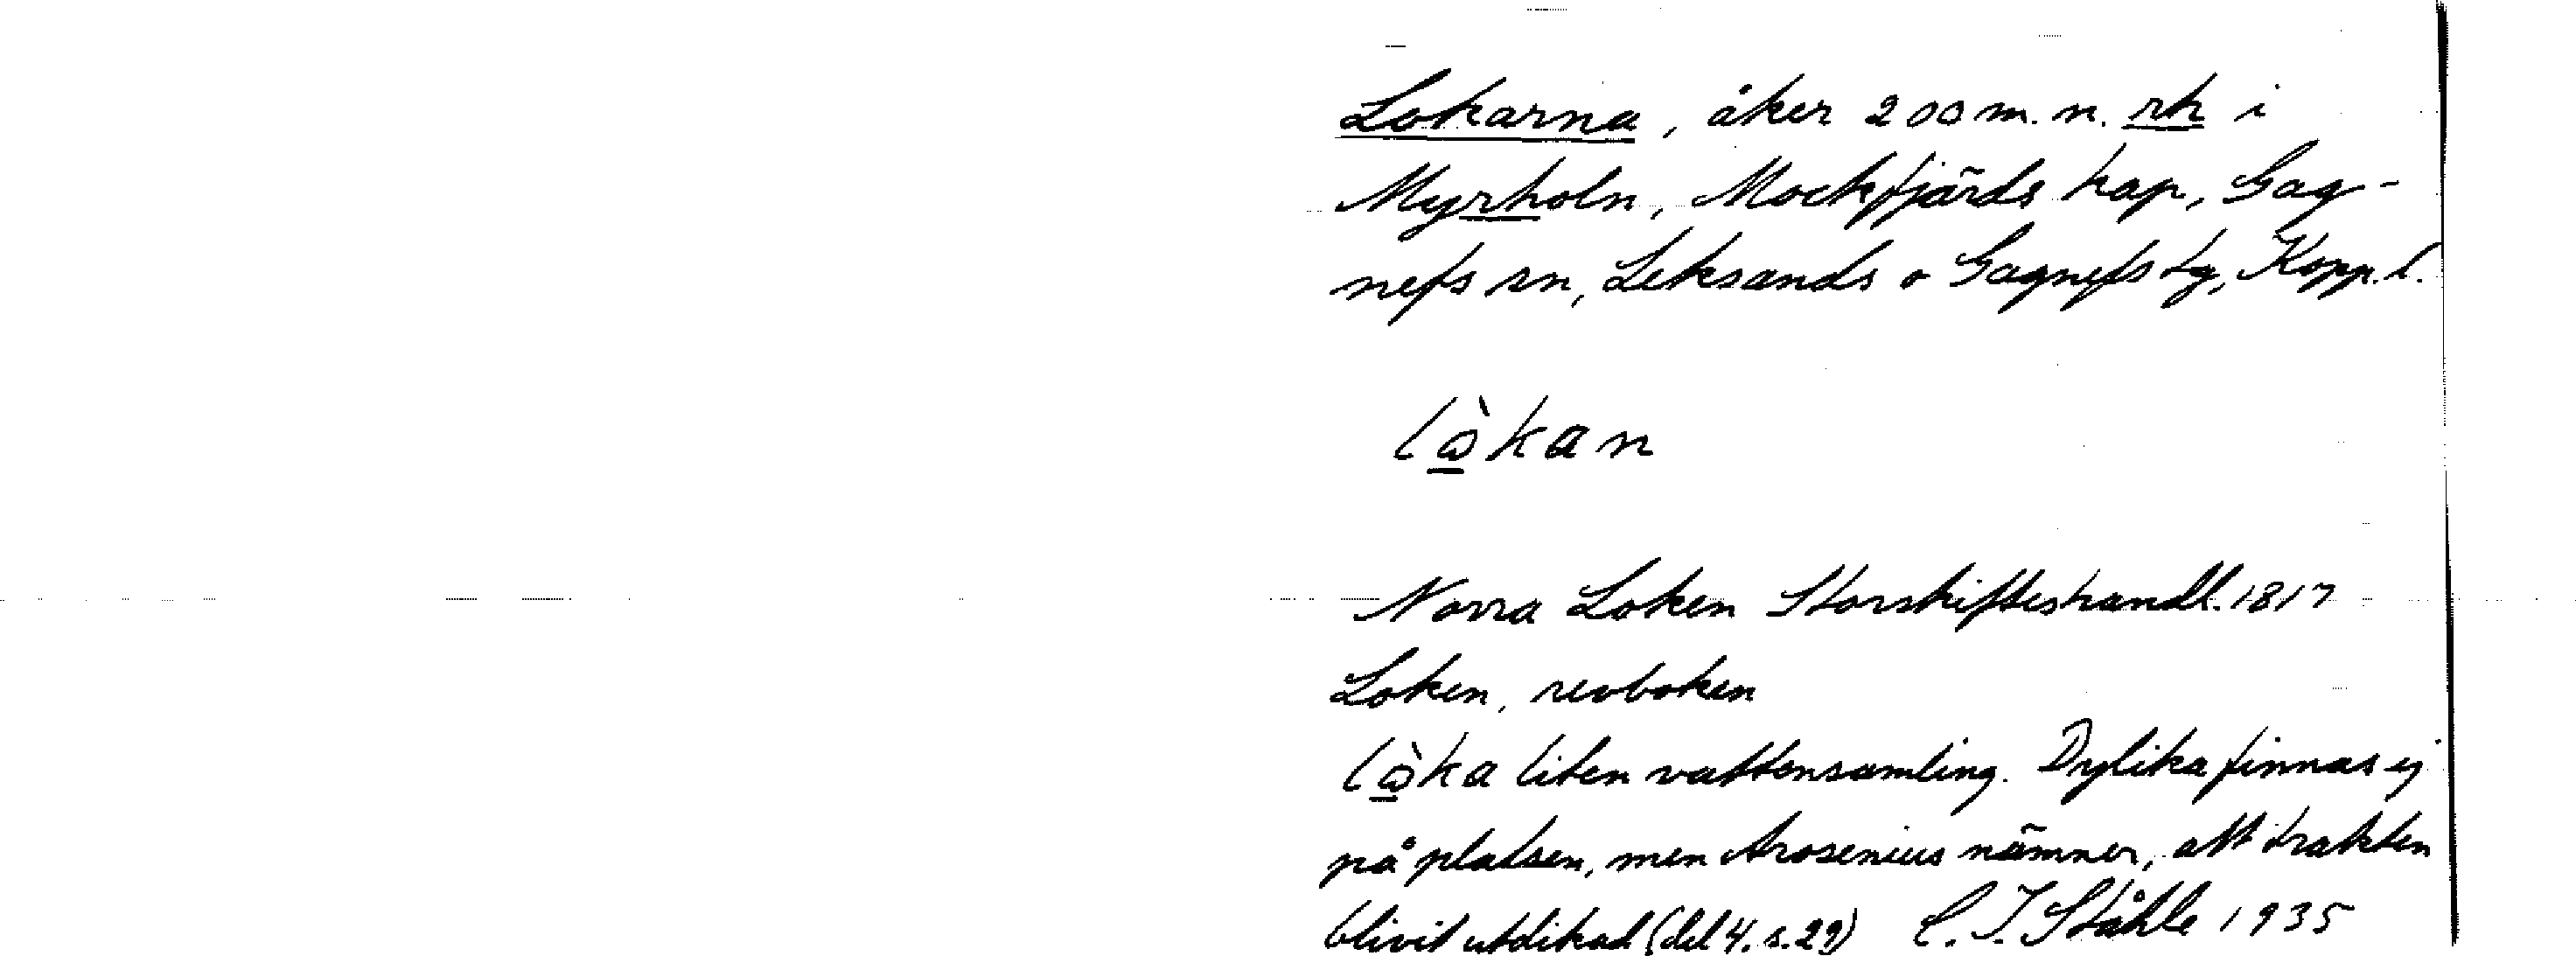 Lokarna, åker 200 m. n. rh i
Myrholn, Mockfjärds kap, Gag-
nefs sn, Leksands o Gagnefs tg, Kopp. l.
lòkan
Norra Loken Storskifteshandl. 1817
Loken, revboken
lòka liten vattensamling. Dylika finnas ej
på platsen, men Arosenius nämner, att trakten
blivit utdikad (del 4. s. 29) C. I. Ståhle 1935